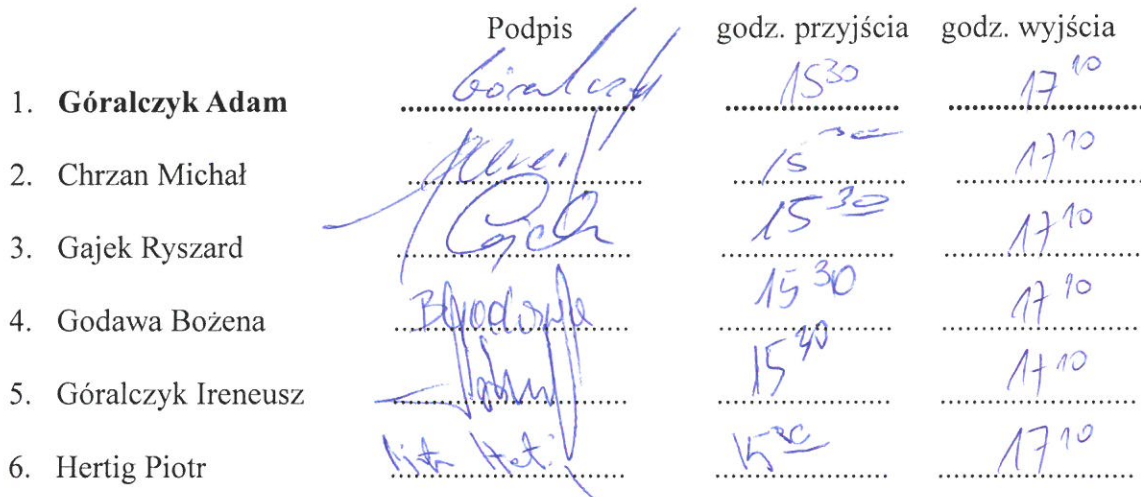 Podpis godz. przyjścia godz. wyjścia
1. Góralczyk Adam Góralczyk 15 30 17 10
2. Chrzan Michał 15 30 17 10
3. Gajek Ryszard 15 30 17 10
4. Godawa Bożena 15 30 17 10
5. Góralczyk Ireneusz 15 30 17 10
6. Hertig Piotr 15 30 17 10